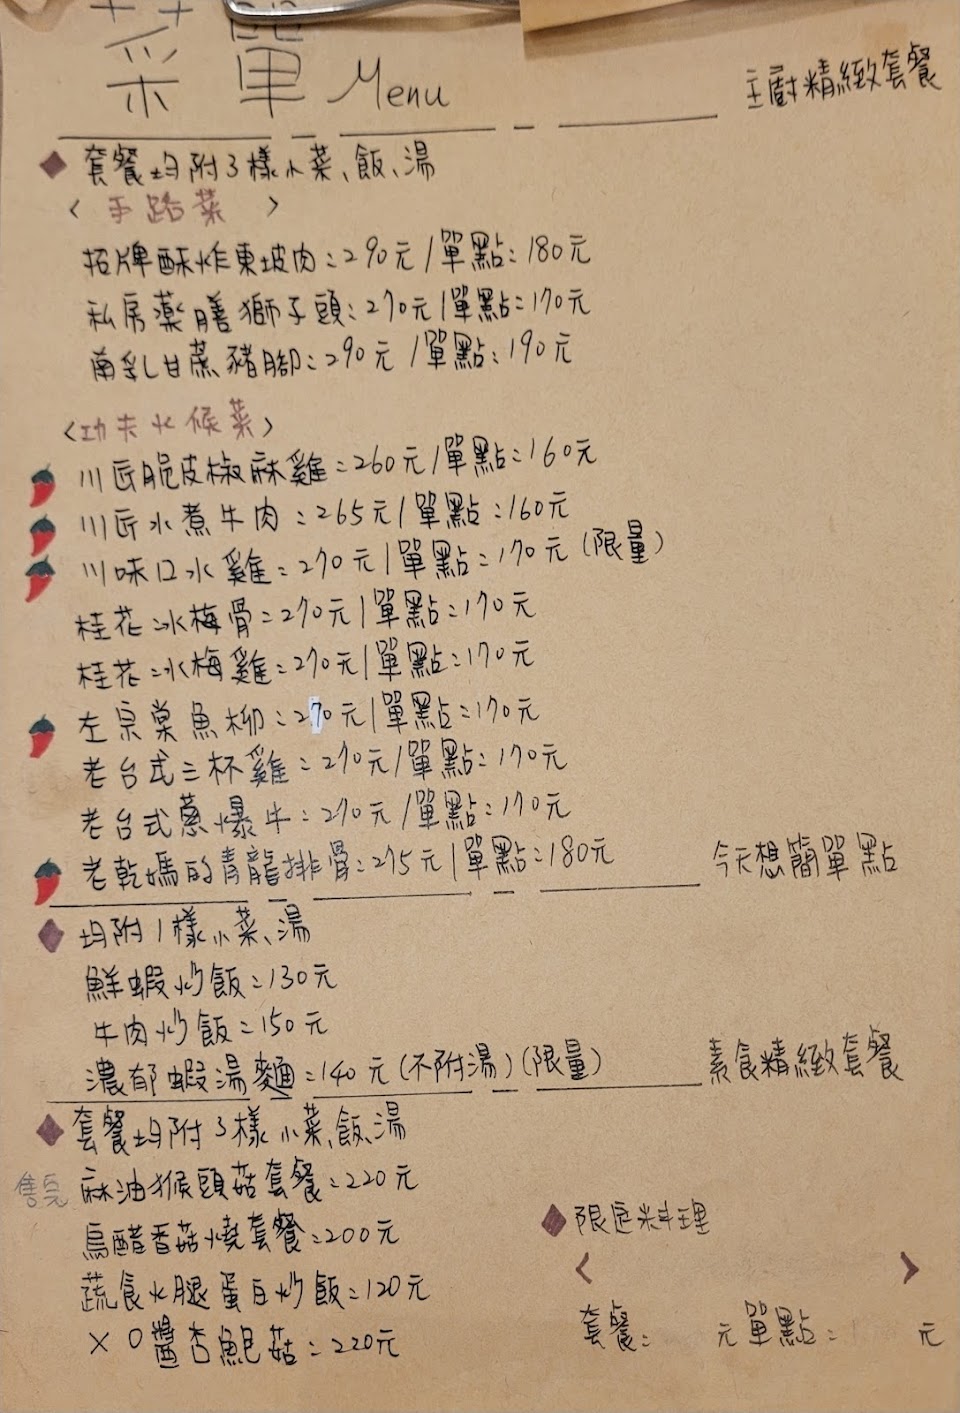 菜單 Menu
主廚精緻套餐
套餐均附3樣小菜、飯、湯
〈手路菜〉
招牌酥炸東坡肉:290元/單點:180元
私房藥膳獅子頭:270元/單點:170元
南乳甘蔗豬腳:290元/單點:190元
〈功夫火候菜〉
川匠脆皮椒麻雞:260元/單點:160元
川匠水煮牛肉:265元/單點:160元
川味口水雞:270元/單點:170元(限量)
桂花冰梅骨:270元/單點:170元
桂花冰梅雞:270元/單點:170元
左宗棠魚柳:270元/單點:170元
老台式三杯雞:270元/單點:170元
老台式蔥爆牛:270元/單點:170元
老乾媽的青龍排骨:275元/單點:180元
今天想簡單點
均附1樣小菜、湯
鮮蝦炒飯:130元
牛肉炒飯:150元
濃郁蝦湯麵:140元(不附湯)(限量)
素食精緻套餐
套餐均附3樣小菜、飯、湯
售完 麻油猴頭菇套餐:220元
烏醋香菇燒套餐:200元
蔬食火腿蛋白炒飯:120元
XO醬杏鮑菇:220元
限定料理
〈 〉
套餐: 元 單點: 元